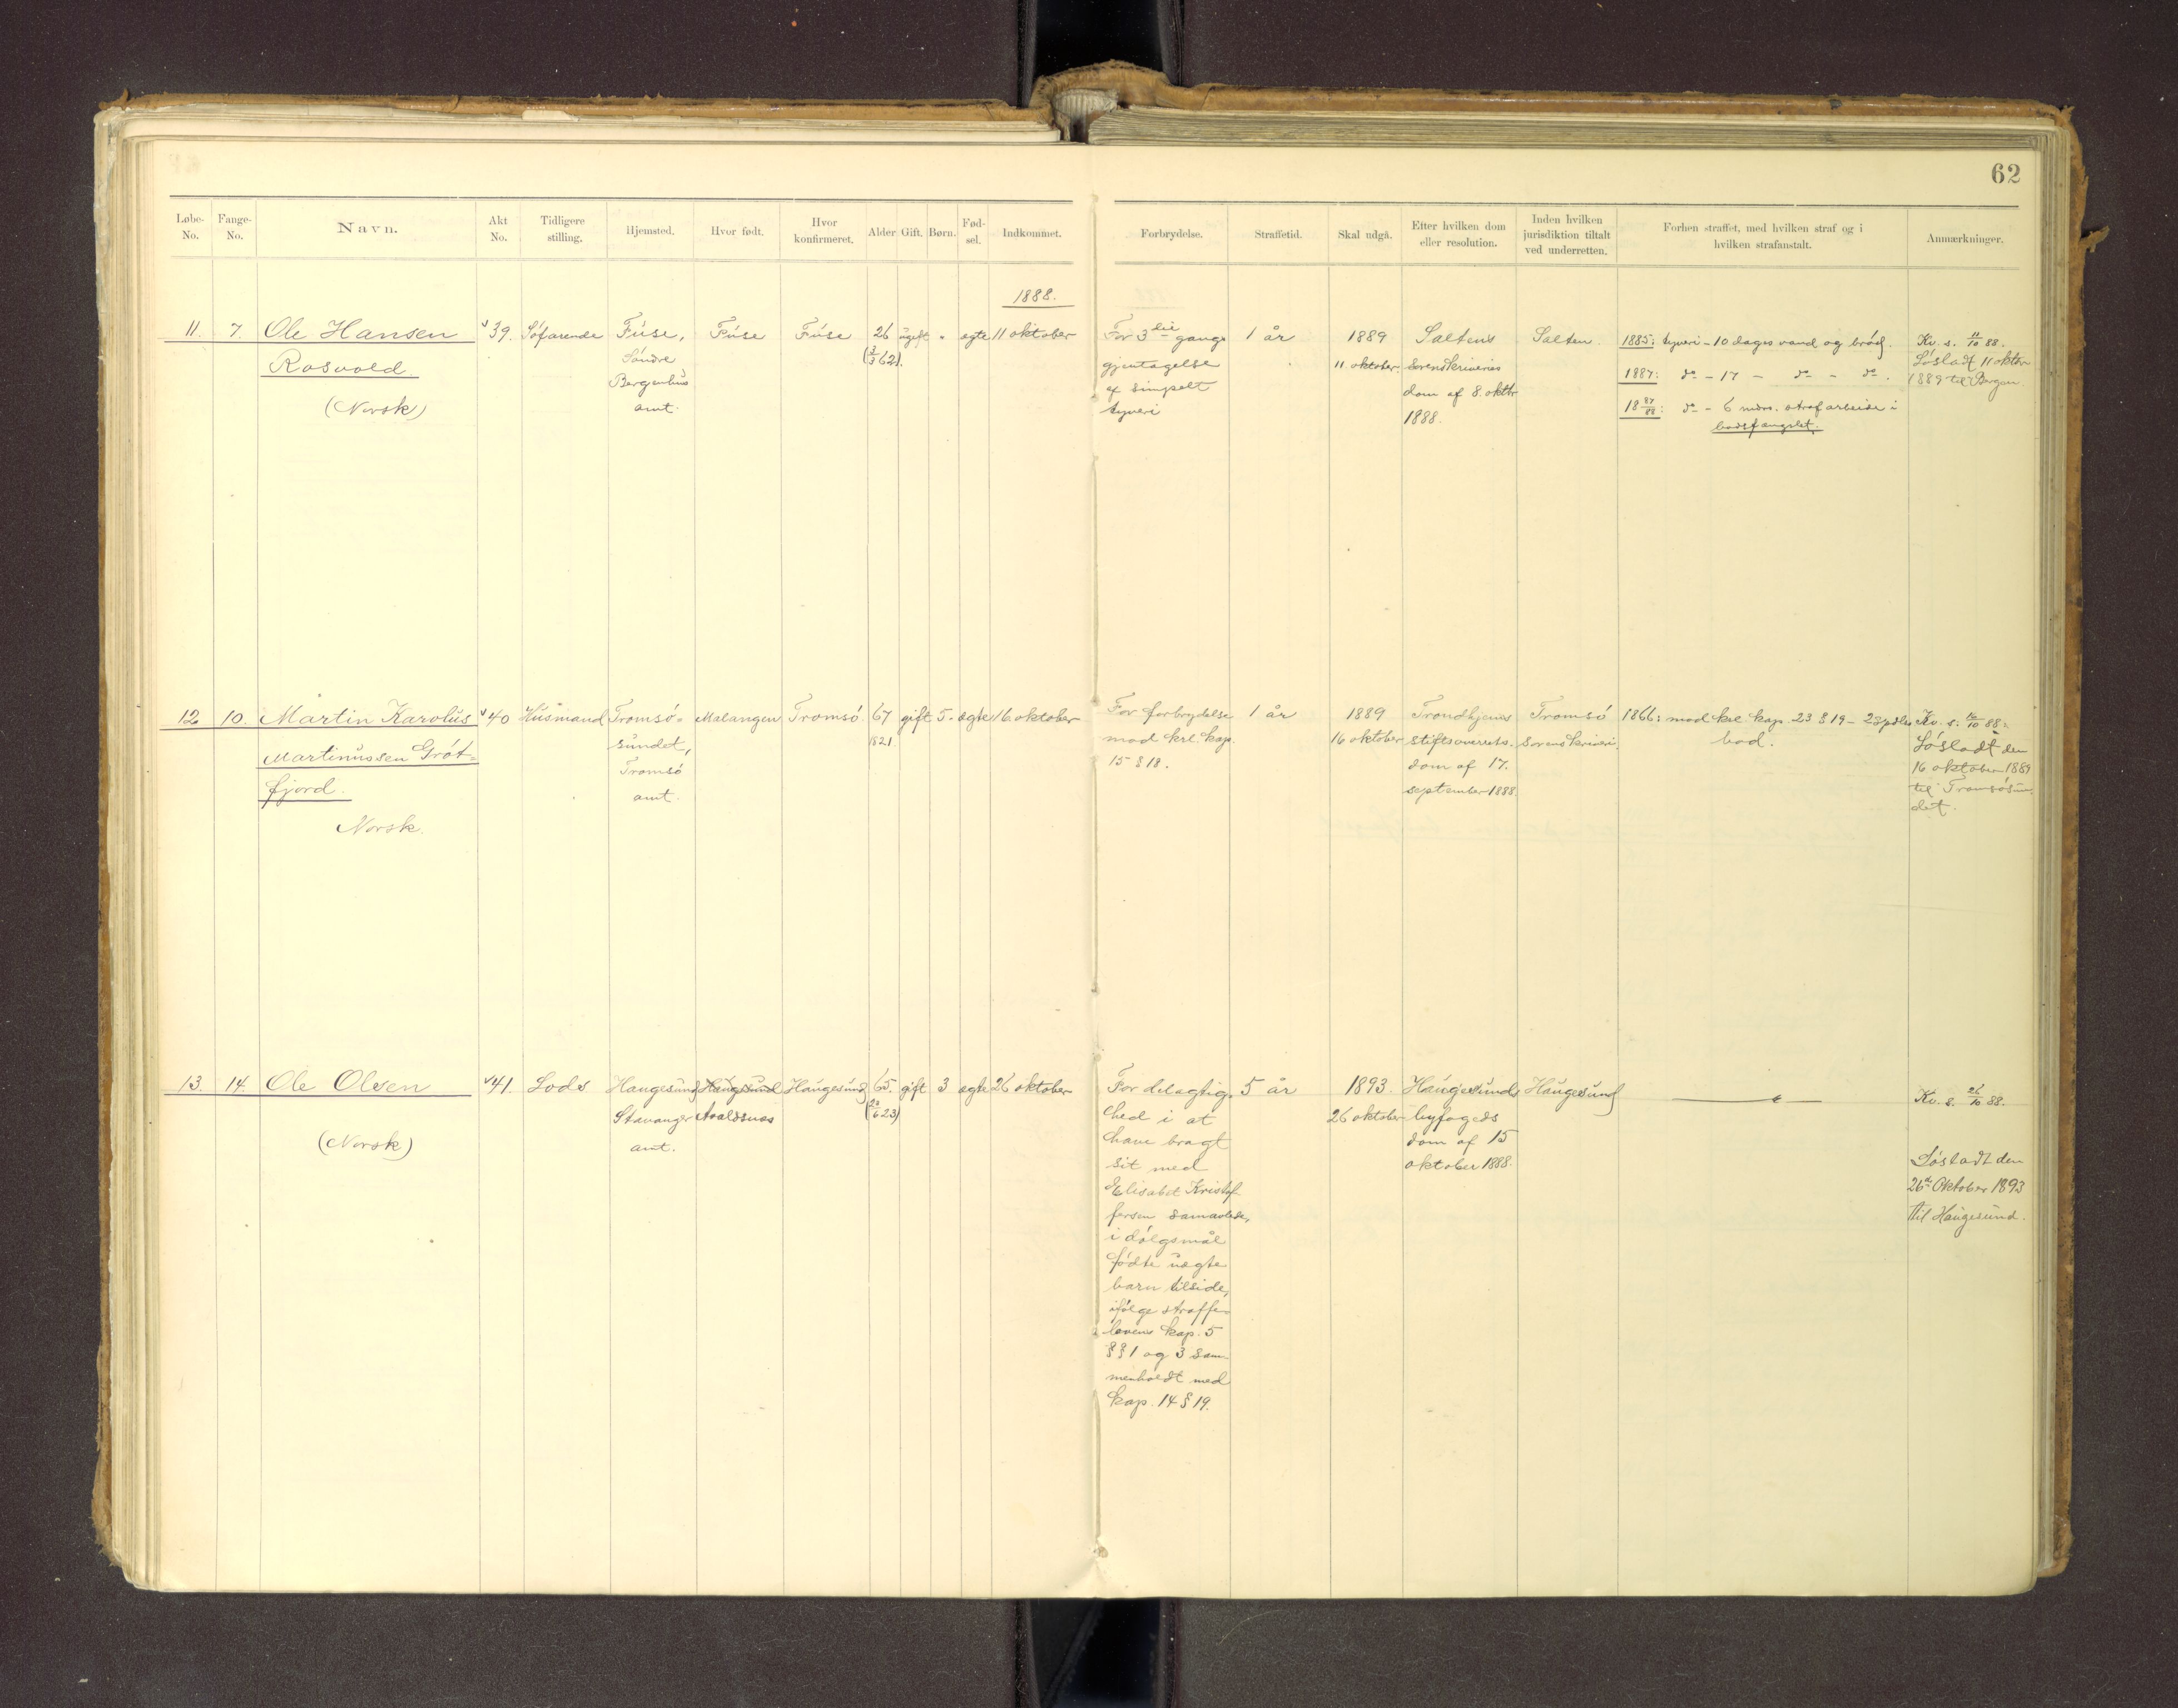 62
Løbe-No.
Fange-No.
Navn.
Akt No.
Tidligere stilling.
Hjemsted.
Hvor født.
Hvor konfirmeret.
Alder
Gift.
Børn.
Fød-sel.
Indkommet.
Forbrydelse.
Straffetid.
Skal udgå.
Efter hvilken dom eller resolution.
Inden hvilken jurisdiktion tiltalt ved underretten.
Forhen straffet, med hvilken straf og i hvilken strafanstalt.
Anmærkninger.
1888.
11.
7.
Ole Hansen
Rosvold
(Norsk)
39.
Søfarende
Fuse,
Søndre
Bergenhus
amt.
Fuse
Fuse
26
(3/3 62).
ugift
"
egte
11 oktober
For 3die gangs
gjentagelse
af simpelt
tyveri
1 år
1889
11 oktober
Saltens
sorenskriveries
dom af 8. oktbr
1888.
Salten.
1885: tyveri – 10 dages vand og brød.
1887: do – 17 – do – do.
18 87/88: do – 6 mdrs. strafarbeide i
bodsfængslet.
Kv. s. 11/10 88.
Løsladt 11 oktbr
1889 til Bergen.
12
10.
Martin Karolus
Martinussen Grøt=
fjord.
Norsk.
40
Husmand
Tromsø=
sundet,
Tromsø
amt.
Malangen
Tromsø
67
1821.
gift
5.
ægte
16 oktober
For forbrydelse
mod krl. kap.
15 § 18.
1 år
1889
16 oktober
Trondhjems
stiftsoverrets.
dom af 17.
september 1888.
Tromsø
sorenskriveri.
1866: mod krl. kap. 23 § 19 – 2 spdlrs
bod.
Kv. s. 16/10 88.
Løsladt den
16 oktober 1889
til Tromsøsun-
det.
13.
14.
Ole Olsen
(Norsk)
41.
Lods
Haugesund
Stavanger
amt.
Haugesund
Avaldsnes
Haugesund
65.
(23/6 23)
gift
3
ægte
26 oktober
For delagtig-
hed i at
have bragt
sit med
Elisabet Kristof-
fersen samavlede,
i dølgsmål
fødte uægte
barn tilside,
ifølge straffe-
lovens kap. 5
§§ 1 og 3 sam-
menholdt med
kap. 14 § 19.
5 år
1893.
26 oktober
Haugesunds
byfogeds
dom af 15
oktober 1888.
Haugesund
Kv. s. 26/10 88.
Løsladt den
26de Oktober 1893
til Haugesund.